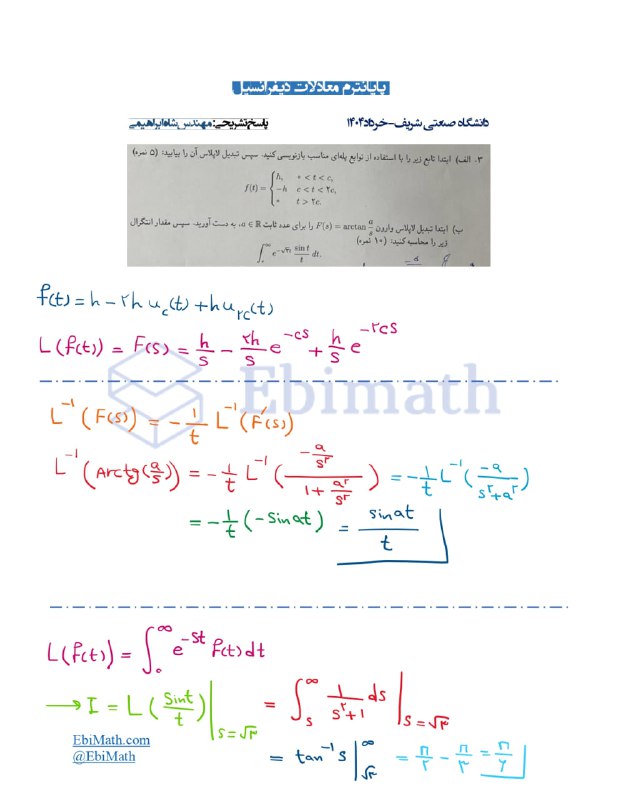 پایانترم معادلات دیفرانسیل
دانشگاه صنعتی شریف-خرداد۱۴۰۴ پاسخ تشریحی: مهندس شاه ابراهیمی
۳. الف) ابتدا تابع زیر را با استفاده از توابع پله‌ای مناسب بازنویسی کنید. سپس تبدیل لاپلاس آن را بیابید: (۵ نمره)
f(t) = { h, ۰ < t < c,
−h c < t < ۲c,
۰ t > ۲c.
ب) ابتدا تبدیل لاپلاس وارون F(s) = arctan a/s را برای عدد ثابت a ∈ ℝ، به دست آورید. سپس مقدار انتگرال
زیر را محاسبه کنید: (۱۰ نمره)
∫₀^∞ e^(−√۳t) sin t / t dt.
f(t) = h − ۲h u_c(t) + h u_۲c(t)
L(f(t)) = F(s) = h/s − ۲h/s e^(−cs) + h/s e^(−۲cs)
Ebimath
L⁻¹(F(s)) = −1/t L⁻¹(F′(s))
L⁻¹(Arctg(a/s)) = −1/t L⁻¹((−a/s^۲)/(1 + a^۲/s^۲)) = −1/t L⁻¹(−a/(s^۲+a^۲))
= −1/t (−sin at) = sin at / t
L(f(t)) = ∫₀^∞ e^(−st) f(t) dt
→ I = L(sin t / t)|_(s=√۳) = ∫_s^∞ 1/(s^۲+1) ds |_(s=√۳)
= tan⁻¹ s |_√۳^∞ = π/۲ − π/۳ = π/۶
EbiMath.com
@EbiMath